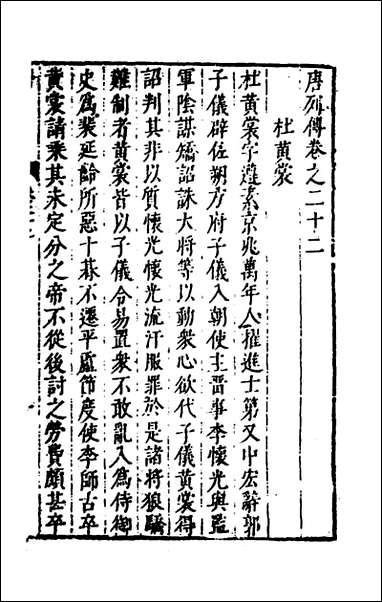 唐列傳卷之二十二
杜黃裳
杜黃裳字遵素京兆萬年人擢進士第又中宏辭郭
子儀辟佐朔方府子儀入朝使主畱事李懷光與監
軍陰謀矯詔誅大將等以動衆心欲代子儀黃裳得
詔判其非以質懷光懷光流汗服罪於是諸將狼驁
難制者黃裳皆以子儀令易置衆不敢亂入爲侍御
史爲裴延齡所惡十朞不遷平盧節度使李師古卒
黃裳請乘其未定分之帝不從後討之勞費頗甚卒